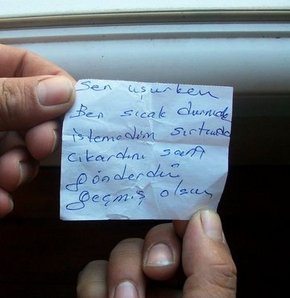 Sen üşürken
Ben sıcak durmak
istemedim sırtımda
çıkardım sana
gönderdim
Geçmiş olsun